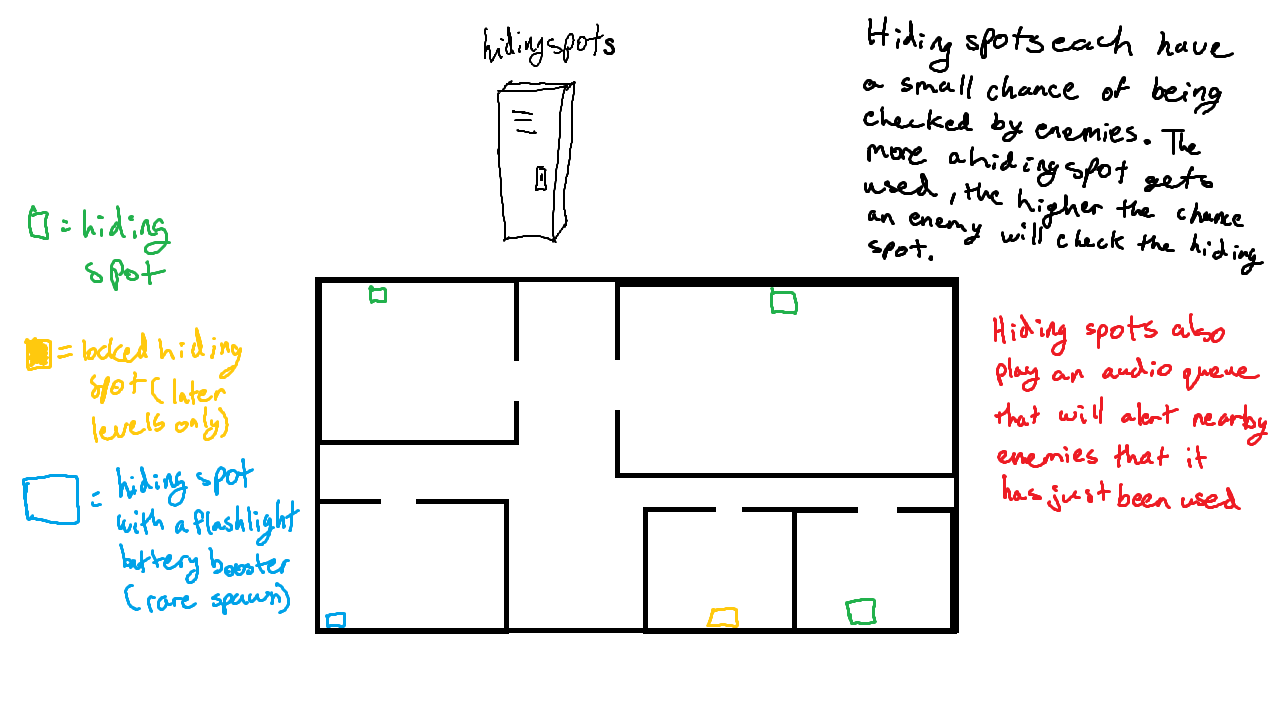 hiding spots
Hiding spots each have
a small chance of being
checked by enemies. The
more a hiding spot gets
used, the higher the chance
an enemy will check the hiding
spot.
= hiding
spot
= locked hiding
spot (later
levels only)
= hiding spot
with a flashlight
battery booster
(rare spawn)
Hiding spots also
play an audio queue
that will alert nearby
enemies that it
has just been used